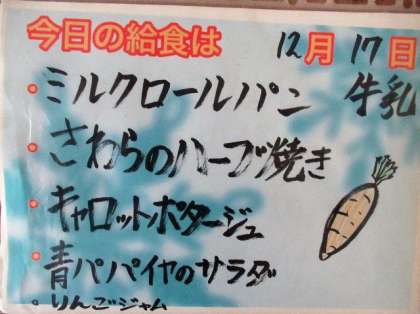 今日の給食は 12月17日
・ミルクロールパン 牛乳
・さわらのハーブ焼き
・キャロットポタージュ
・青パパイヤのサラダ
・りんごジャム